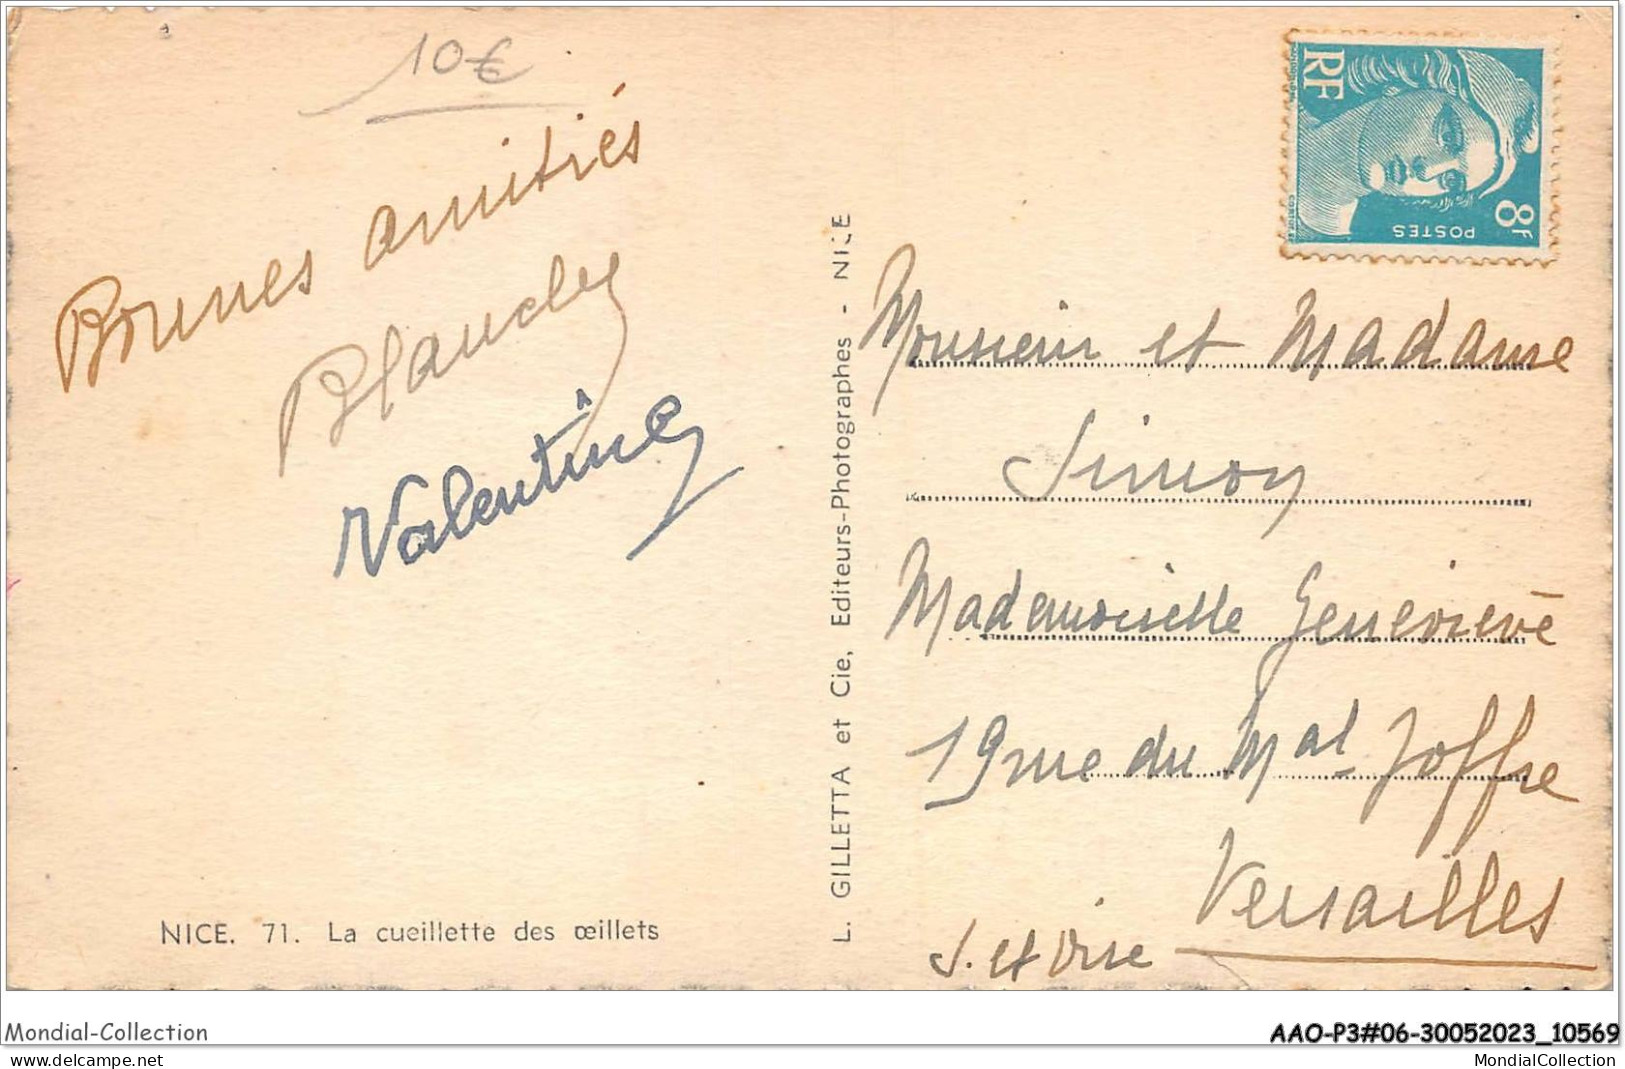 10€
Bonnes amitiés
Blanche
Valentine
NICE. 71. La cueillette des œillets
L. GILLETTA et Cie, Editeurs-Photographes - NICE
RF
POSTES
8F
Monsieur et Madame
Simon
Mademoiselle Geneviève
19 rue du Mal Joffre
Versailles
S. et Oise
Mondial-Collection
AAO-P3#06-30052023_10569
www.delcampe.net
MondialCollection